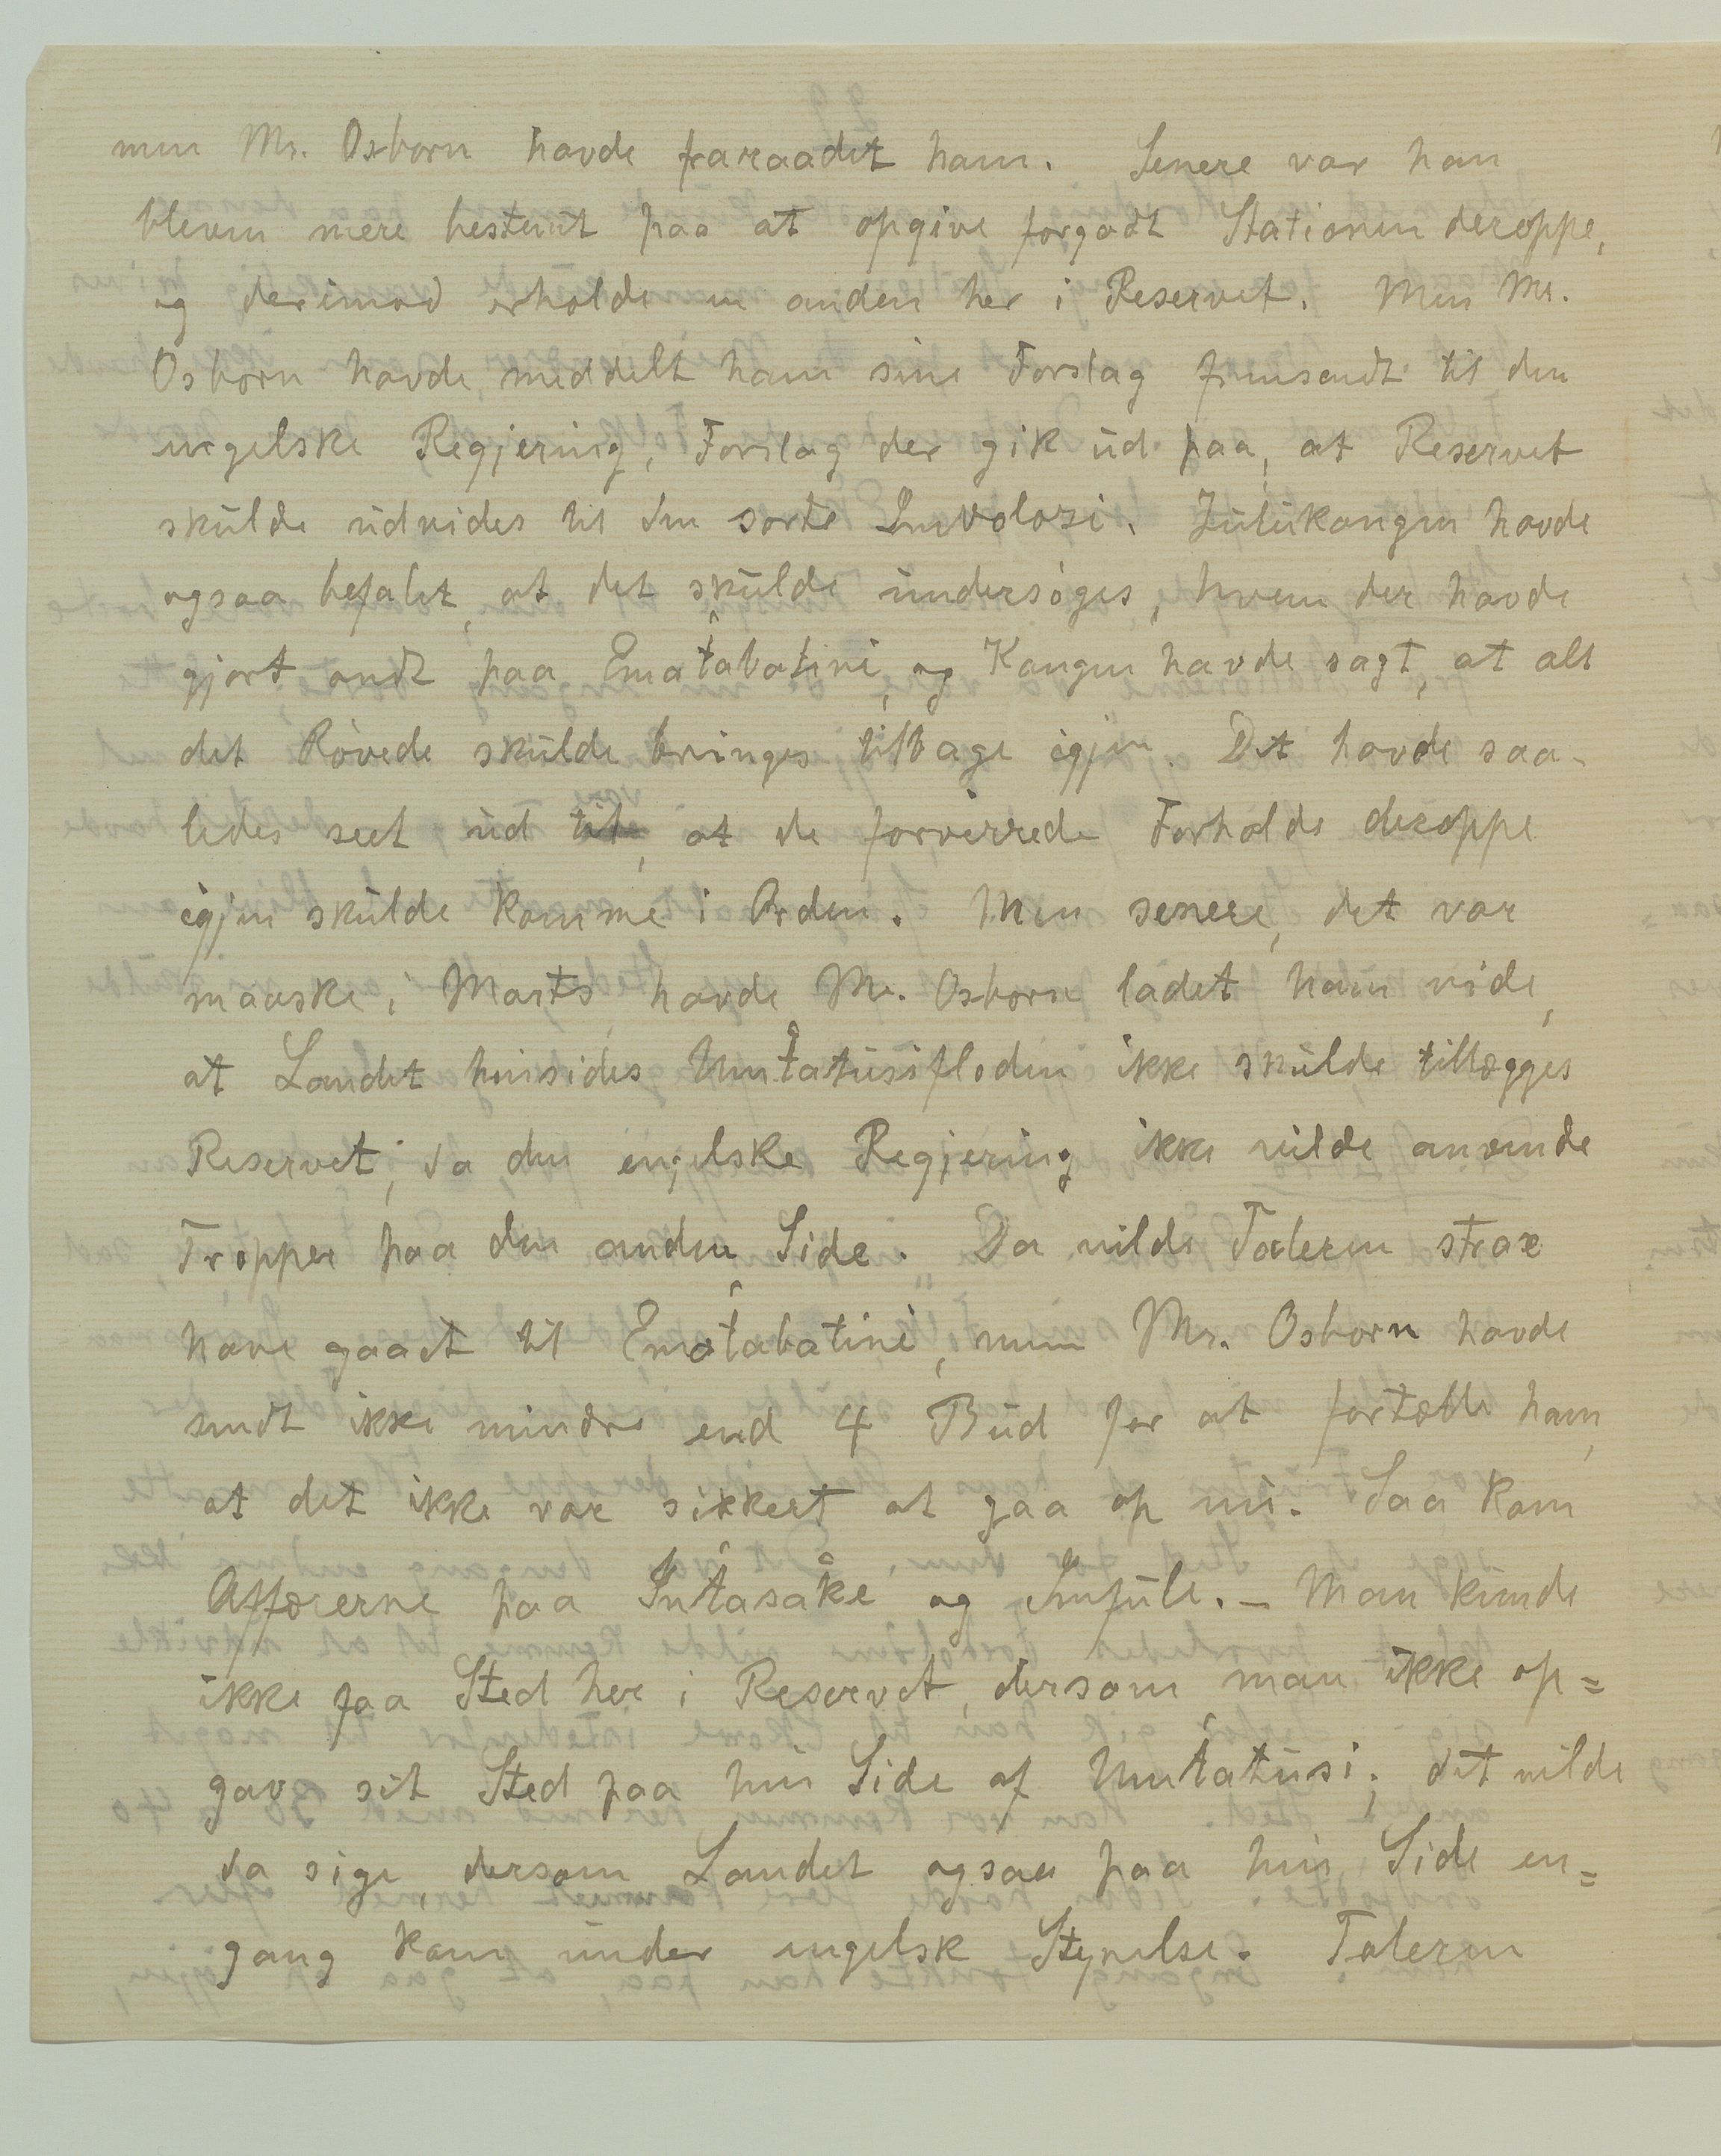 men Mr. Osborn havde fraraadet ham. Senere var han
bleven mere bestemt paa at opgive forgodt Stationen deroppe,
og derimod erholde en anden her i Reservet. Men Mr.
Osborn havde meddelt ham sine Forslag fremsendt til den
engelske Regjering, Forslag der gik ud paa, at Reservet
skulde udvides til den sorte Imvolozi. Zulukongen havde
ogsaa befalet, at det skulde undersøges, hvem der havde
gjort ondt paa Ematabatini, og Kongen havde sagt, at alt
det Røvede skulde bringes tilbage igjen. Det havde saa-
ledes seet ud til, at de forvirrede Forholde deroppe
igjen skulde komme i Orden. Men senere, det var
maaske i Marts havde Mr. Osborn ladet ham vide,
at Landet hinsides Umtatusifloden ikke skulde tillægges
Reservet, da den engelske Regjering ikke vilde anvende
Tropper paa den anden Side. Da vilde Taleren strax
have gaaet til Ematabatini, men Mr. Osborn havde
sendt ikke mindre end 4 Bud for at fortælle ham,
at det ikke var sikkert at gaa op nu. Saa kom
Affærerne paa Intasake og Imfule. – Man kunde
ikke faa Sted her i Reservet, dersom man ikke op=
gav sit Sted paa hin Side af Umtatusi; det vilde
da sige dersom Landet ogsaa paa hin Side en=
gang kom under engelsk Styrelse. Taleren